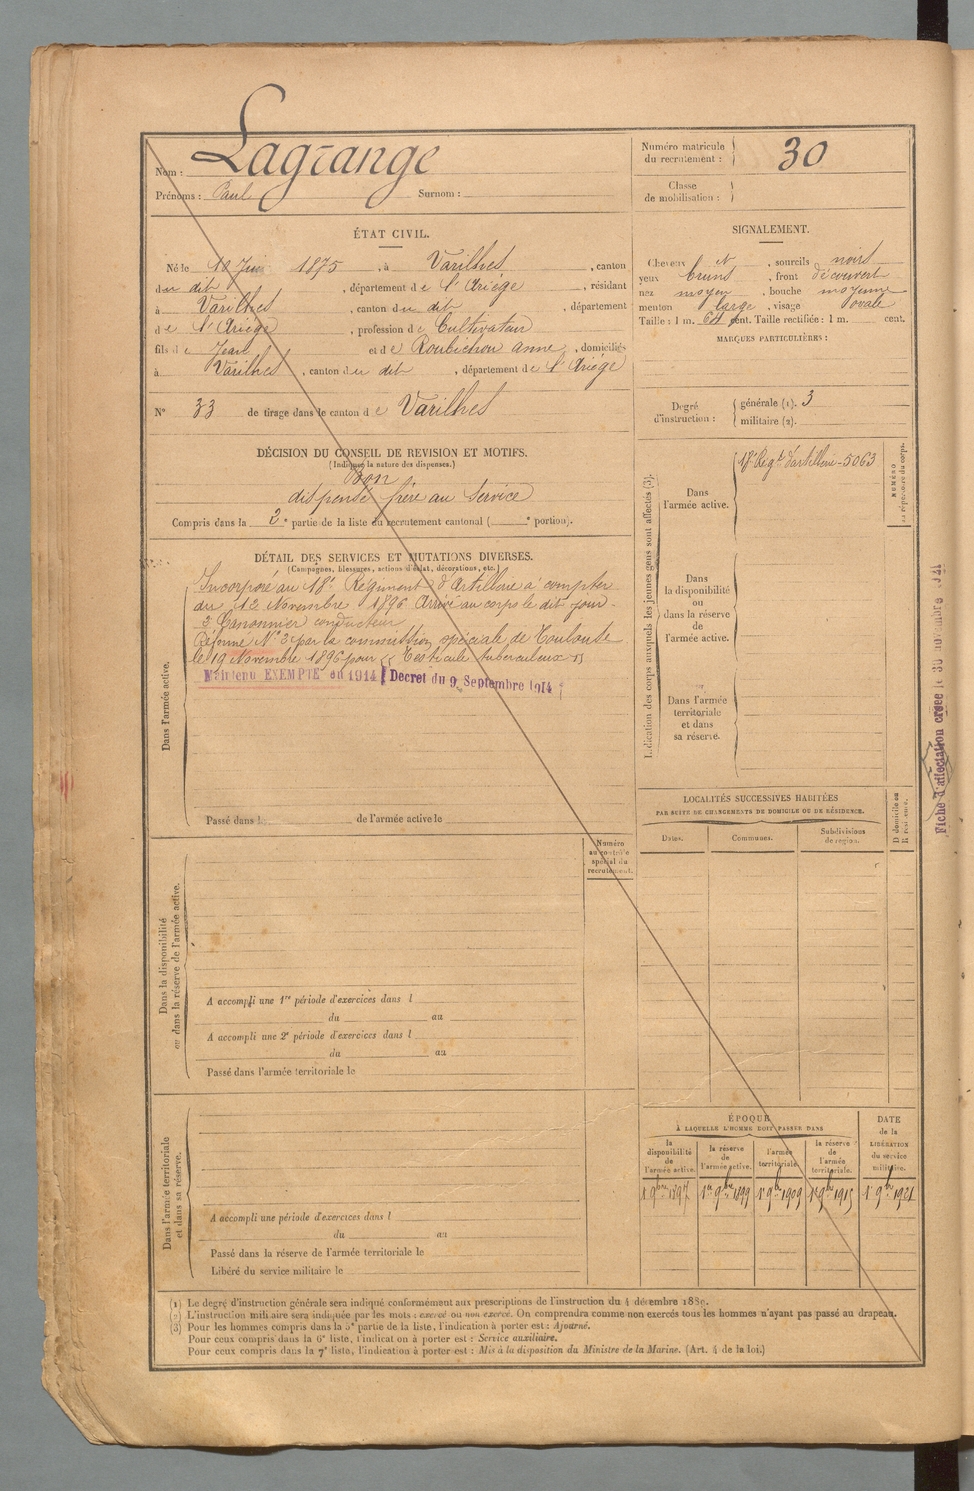 Nom : Lagrange
Prénoms : Paul Surnom :
Numéro matricule du recrutement : 30
Classe de mobilisation :
ÉTAT CIVIL.
Né le Juin 1875, à Varilhes, canton
du dit, département de l'Ariége, résidant
à Varilhes, canton du dit, département
de l'Ariége, profession de Cultivateur
fils de Jean et de Roubichou anne, domiciliés
à Varilhes, canton du dit, département de l'Ariége
N° 33 de tirage dans le canton de Varilhes
SIGNALEMENT.
Cheveux et, sourcils noirs
yeux bruns, front découvert
nez moyen, bouche moyenne
menton large, visage ovale
Taille : 1 m. cent. Taille rectifiée : 1 m. cent.
MARQUES PARTICULIÈRES :
Degré d'instruction : générale (1). 3
militaire (2).
DÉCISION DU CONSEIL DE REVISION ET MOTIFS.
(Indiquer la nature des dispenses.)
Bon
dispensé frère au Service
Compris dans la 2e partie de la liste du recrutement cantonal ( e portion).
DÉTAIL DES SERVICES ET MUTATIONS DIVERSES.
(Campagnes, blessures, actions d'éclat, décorations, etc.)
Dans l'armée active.
Incorporé au 18e Régiment d'Artillerie à compter
du 12 Novembre 1896 Arrivé au corps le dit jour.
2e Canonnier conducteur
Réformé N° 2 par la commission spéciale de Toulouse
le 19 Novembre 1896 pour « Testicule tuberculeux »
Maintenu EXEMPTÉ en 1914 [Decret du 9 Septembre 1914
Passé dans l de l'armée active le
Indication des corps auxquels les jeunes gens sont affectés (3).
Dans l'armée active.
18e Regt d'artillerie - 5063
NUMÉRO au répertoire du corps.
Dans la disponibilité ou dans la réserve de l'armée active.
Dans l'armée territoriale et dans sa réserve.
LOCALITÉS SUCCESSIVES HABITÉES
PAR SUITE DE CHANGEMENTS DE DOMICILE OU DE RÉSIDENCE.
Dates. Communes. Subdivisions de région. D domicile ou R résidence.
Fiche d'affectation créée le 30 novembre
Numéro au contrôle spécial du recrutement.
Dans la disponibilité ou dans la réserve de l'armée active.
A accompli une 1re période d'exercices dans l
du au
A accompli une 2e période d'exercices dans l
du au
Passé dans l'armée territoriale le
Dans l'armée territoriale et dans sa réserve.
A accompli une période d'exercices dans l
du au
Passé dans la réserve de l'armée territoriale le
Libéré du service militaire le
ÉPOQUE
À LAQUELLE L'HOMME DOIT PASSER DANS
la disponibilité de l'armée active. la réserve de l'armée active. l'armée territoriale. la réserve de l'armée territoriale. DATE de la LIBÉRATION du service militaire.
1er 9bre 1897 1er 9bre 1899 1er 9bre 1909 1er 9bre 1915 1er 9bre 1921
(1) Le degré d'instruction générale sera indiqué conformément aux prescriptions de l'instruction du 4 décembre 1889.
(2) L'instruction militaire sera indiquée par les mots : exercé ou non exercé. On comprendra comme non exercés tous les hommes n'ayant pas passé au drapeau.
(3) Pour les hommes compris dans la 5e partie de la liste, l'indication à porter est : Ajourné.
Pour ceux compris dans la 6e liste, l'indication à porter est : Service auxiliaire.
Pour ceux compris dans la 7e liste, l'indication à porter est : Mis à la disposition du Ministre de la Marine. (Art. 4 de la loi.)